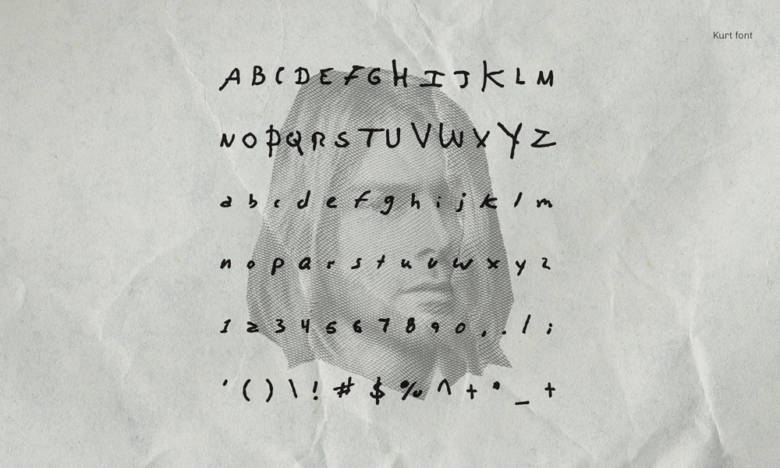 Kurt font
A B C D E F G H I J K L M
N O P Q R S T U V W X Y Z
a b c d e f g h i j k l m
n o p q r s t u v w x y z
1 2 3 4 5 6 7 8 9 0 , . / ;
' ( ) \ ! # $ % ^ + * _ +